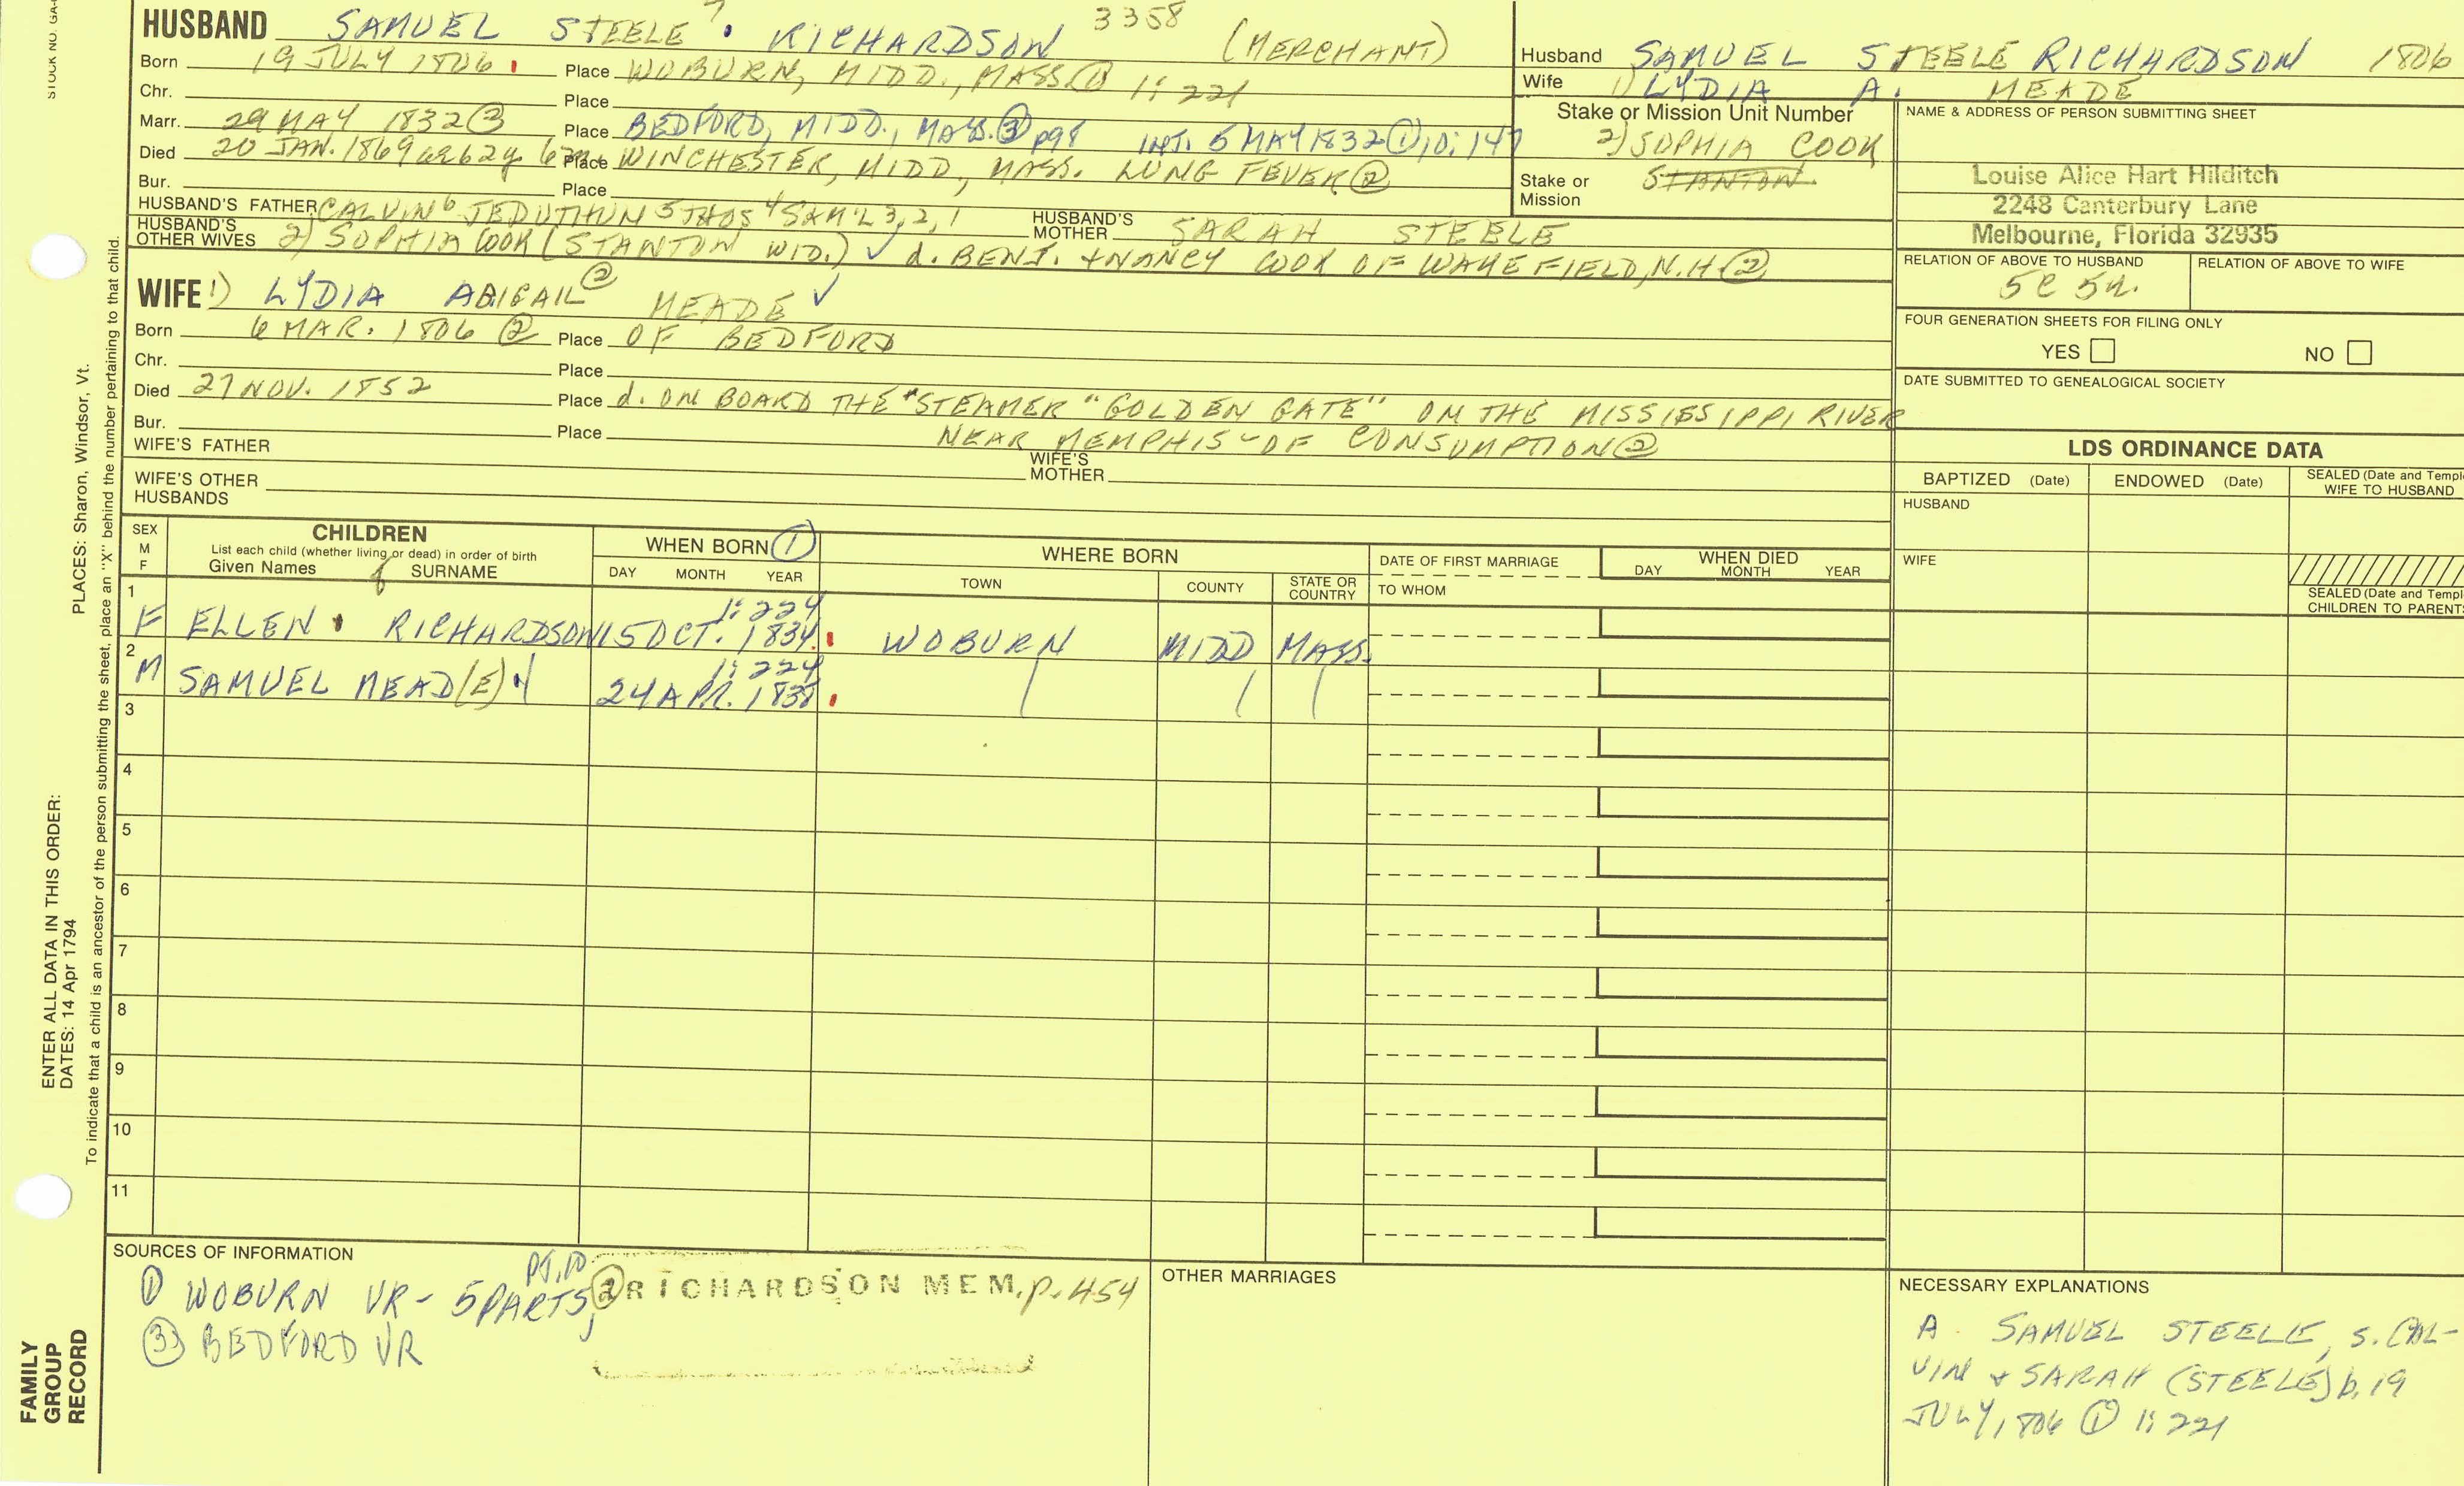 STOCK NO. GA-
HUSBAND SAMUEL STEELE 7 RICHARDSON 3358 (MERCHANT)
Born 19 JULY 1806 Place WOBURN, MIDD., MASS. ① 1:221
Chr. Place
Marr. 29 MAY 1832 ③ Place BEDFORD, MIDD., MASS. ③ p98 INT. 5 MAY 1832 ① 10:147
Died 20 JAN. 1869 ae 62y 6m Place WINCHESTER, MIDD., MASS. LUNG FEVER ②
Bur. Place
HUSBAND'S FATHER CALVIN 6 JEDUTHUN 5 THOS 4 SAM'L 3, 2, 1 HUSBAND'S MOTHER SARAH STEELE
HUSBAND'S OTHER WIVES 2) SOPHIA COOK (STANTON WID.) ✓ d. BENJ. + NANCY COOK OF WAKEFIELD, N.H. ②
WIFE 1) LYDIA ABIGAIL ② MEADE ✓
Born 6 MAR. 1806 ② Place OF BEDFORD
Chr. Place
Died 27 NOV. 1852 Place d. ON BOARD THE STEAMER "GOLDEN GATE" ON THE MISSISSIPPI RIVER
Bur. Place NEAR MEMPHIS - OF CONSUMPTION ②
WIFE'S FATHER WIFE'S MOTHER
WIFE'S OTHER HUSBANDS
Husband SAMUEL STEELE RICHARDSON 1806
Wife 1) LYDIA A. MEADE
Stake or Mission Unit Number
2) SOPHIA COOK
Stake or Mission STANTON
NAME & ADDRESS OF PERSON SUBMITTING SHEET
Louise Alice Hart Hilditch
2248 Canterbury Lane
Melbourne, Florida 32935
RELATION OF ABOVE TO HUSBAND RELATION OF ABOVE TO WIFE
5C 5R.
FOUR GENERATION SHEETS FOR FILING ONLY
YES NO
DATE SUBMITTED TO GENEALOGICAL SOCIETY
LDS ORDINANCE DATA
BAPTIZED (Date) ENDOWED (Date) SEALED (Date and Templ
WIFE TO HUSBAND
HUSBAND
WIFE
SEALED (Date and Templ
CHILDREN TO PARENT
SEX M F
CHILDREN
List each child (whether living or dead) in order of birth
Given Names SURNAME
WHEN BORN ①
DAY MONTH YEAR
WHERE BORN
TOWN COUNTY STATE OR COUNTRY
DATE OF FIRST MARRIAGE
TO WHOM
WHEN DIED
DAY MONTH YEAR
1 1:224
F ELLEN RICHARDSON 15 OCT. 1834 WOBURN MIDD MASS.
2 1:224
M SAMUEL MEAD(E) 24 APR. 1838
3
4
5
6
7
8
9
10
11
SOURCES OF INFORMATION
① WOBURN VR - 5 PARTS, PT.10 ② RICHARDSON MEM. p. 454
③ BEDFORD VR
OTHER MARRIAGES
NECESSARY EXPLANATIONS
A SAMUEL STEELE, s. CAL-
VIN + SARAH (STEELE) b. 19
JULY, 1806 ① 1:221
PLACES: Sharon, Windsor, Vt.
To indicate that a child is an ancestor of the person submitting the sheet, place an "X" behind the number pertaining to that child.
ENTER ALL DATA IN THIS ORDER:
DATES: 14 Apr 1794
FAMILY
GROUP
RECORD